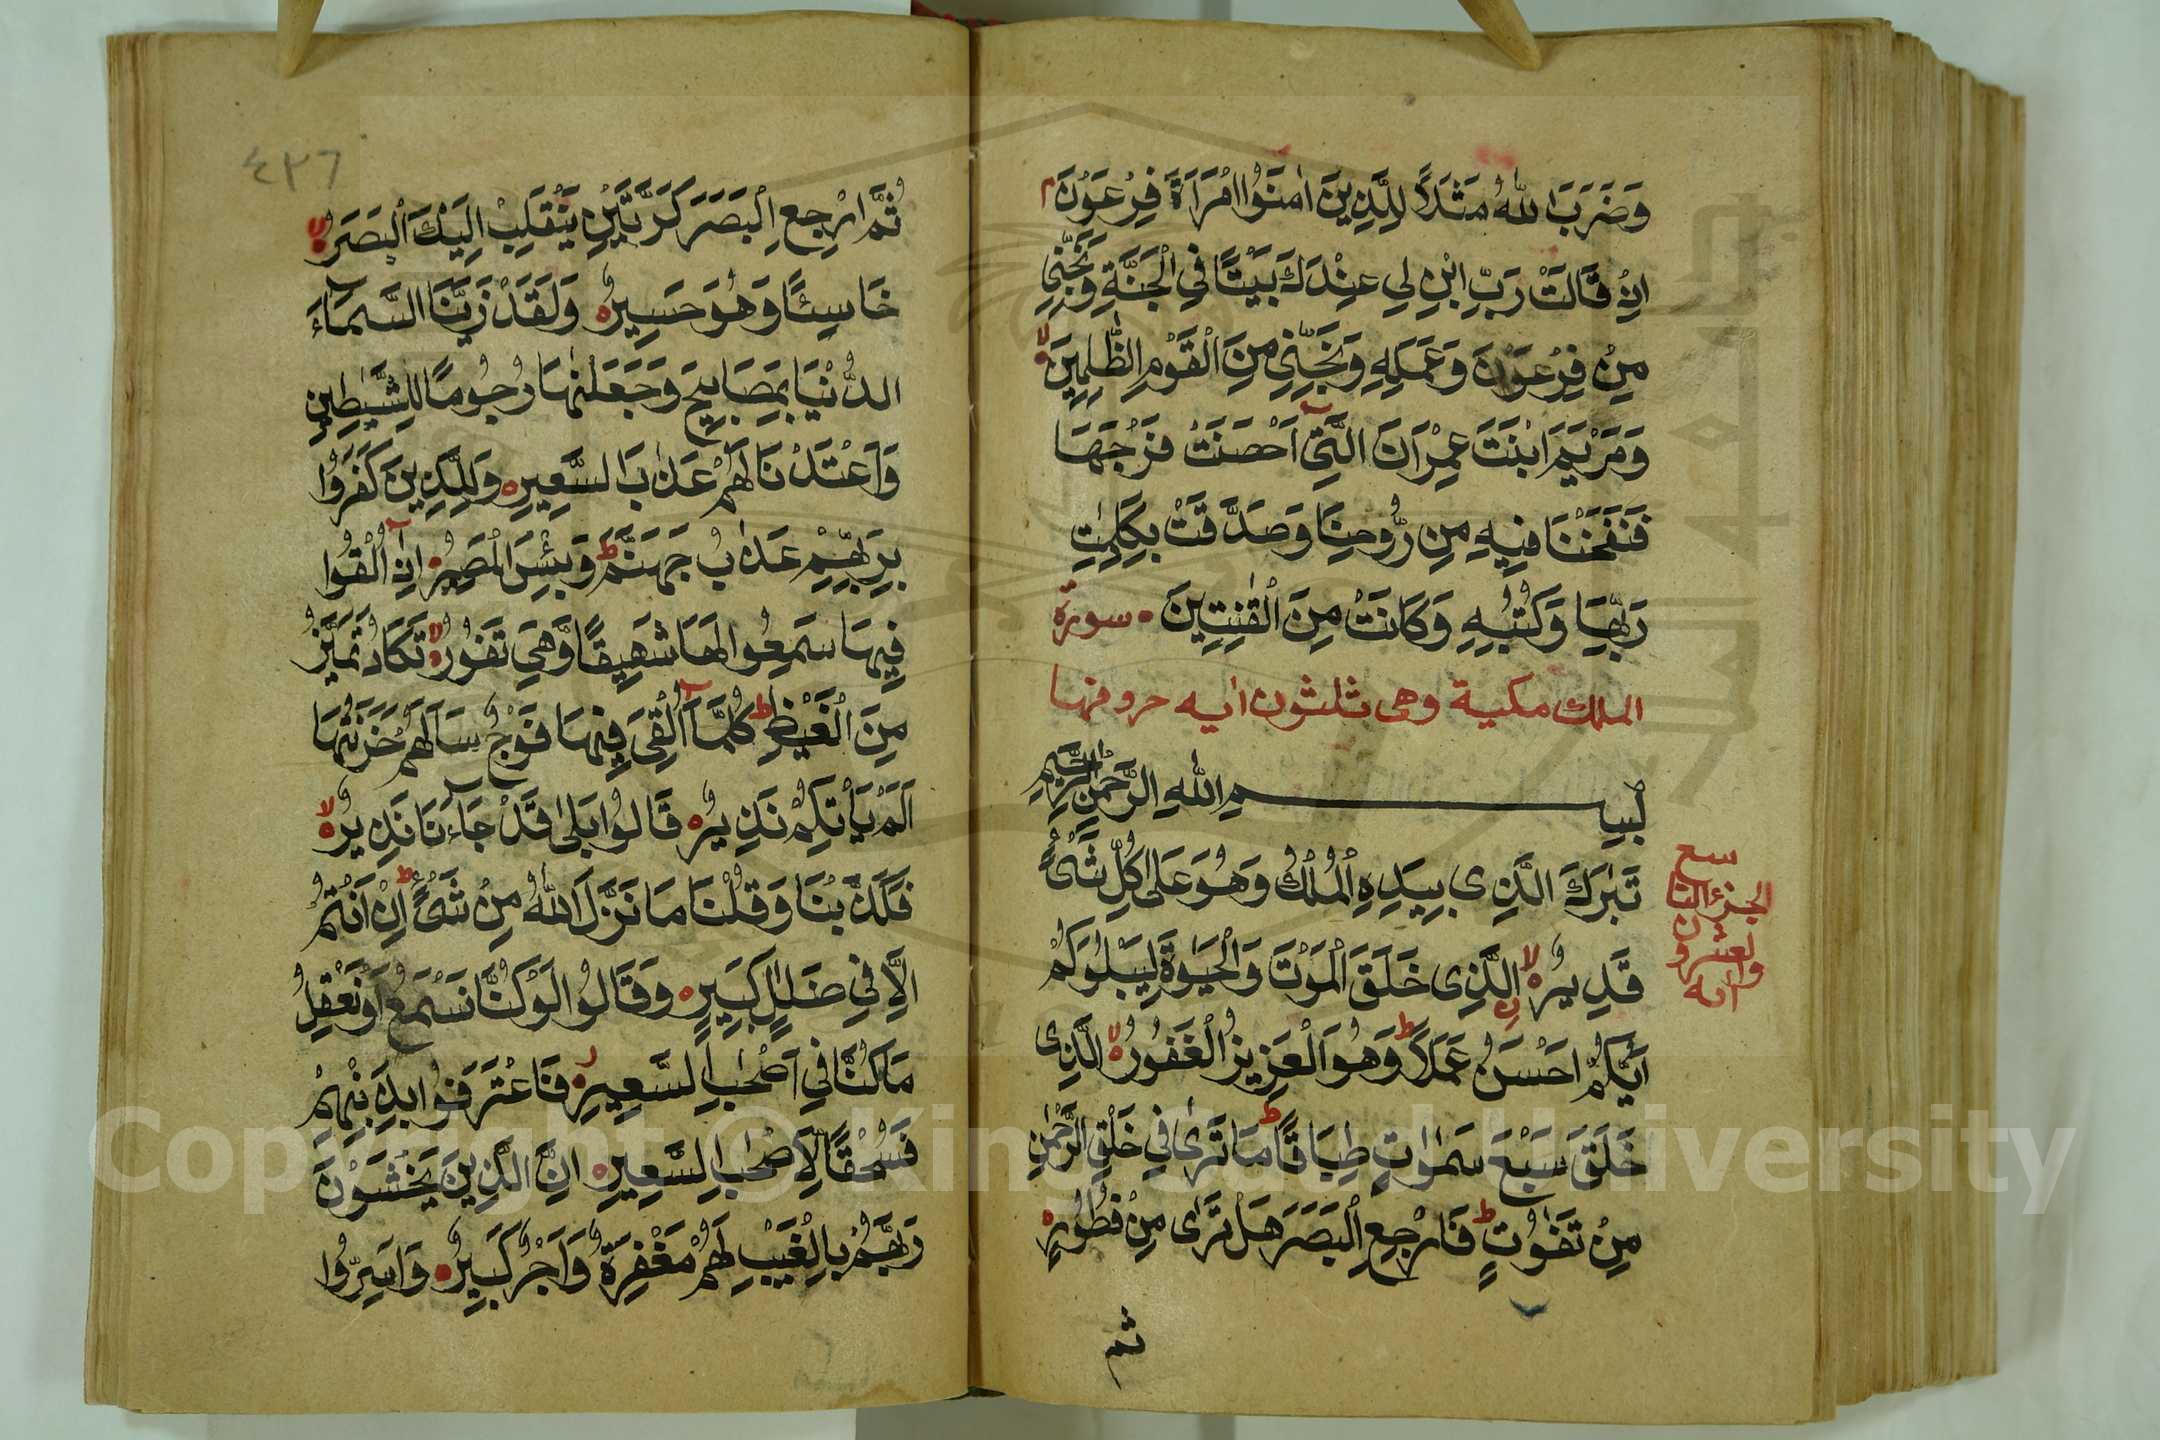 وَضَرَبَ اللّٰهُ مَثَلًا لِلَّذِينَ اٰمَنُوا امْرَاَةَ فِرْعَوْنَ م
اِذْ قَالَتْ رَبِّ ابْنِ لِي عِنْدَكَ بَيْتًا فِي الْجَنَّةِ وَنَجِّنِي
مِنْ فِرْعَوْنَ وَعَمَلِهِ وَنَجِّنِي مِنَ الْقَوْمِ الظّٰلِمِينَ ۙ
وَمَرْيَمَ ابْنَتَ عِمْرَانَ الَّتِي اَحْصَنَتْ فَرْجَهَا
فَنَفَخْنَا فِيهِ مِنْ رُّوحِنَا وَصَدَّقَتْ بِكَلِمٰتِ
رَبِّهَا وَكُتُبِهِ وَكَانَتْ مِنَ الْقٰنِتِينَ ه سورة
الملك مكية وهي ثلثون ايه حروفها
بِسْمِ اللّٰهِ الرَّحْمٰنِ الرَّحِيمِ
تَبٰرَكَ الَّذِي بِيَدِهِ الْمُلْكُ وَهُوَ عَلٰى كُلِّ شَيْءٍ
قَدِيرُ ۙ الَّذِي خَلَقَ الْمَوْتَ وَالْحَيٰوةَ لِيَبْلُوَكُمْ
اَيُّكُمْ اَحْسَنُ عَمَلًا ط وَهُوَ الْعَزِيزُ الْغَفُورُ ۙ الَّذِي
خَلَقَ سَبْعَ سَمٰوٰتٍ طِبَاقًا ط مَا تَرٰى فِي خَلْقِ الرَّحْمٰنِ
مِنْ تَفٰوُتٍ ط فَارْجِعِ الْبَصَرَ هَلْ تَرٰى مِنْ فُطُورٍ ه
ثم
الجزء
والعشرون
٤٣٦
ثُمَّ ارْجِعِ الْبَصَرَ كَرَّتَيْنِ يَنْقَلِبْ اِلَيْكَ الْبَصَرُ لا
خَاسِئًا وَهُوَ حَسِيرٌ ه وَلَقَدْ زَيَّنَّا السَّمَآءَ
الدُّنْيَا بِمَصَابِيحَ وَجَعَلْنٰهَا رُجُومًا لِلشَّيٰطِينِ
وَاَعْتَدْنَا لَهُمْ عَذَابَ السَّعِيرِ ه وَلِلَّذِينَ كَفَرُوا
بِرَبِّهِمْ عَذَابُ جَهَنَّمَ ط وَبِئْسَ الْمَصِيرُ ه اِذَآ اُلْقُوا
فِيهَا سَمِعُوا لَهَا شَهِيقًا وَّهِيَ تَفُورُ ۙ تَكَادُ تَمَيَّزُ
مِنَ الْغَيْظِ ط كُلَّمَآ اُلْقِيَ فِيهَا فَوْجٌ سَاَلَهُمْ خَزَنَتُهَا
اَلَمْ يَأْتِكُمْ نَذِيرٌ ه قَالُوا بَلٰى قَدْ جَآءَنَا نَذِيرٌ ۙ
فَكَذَّبْنَا وَقُلْنَا مَا نَزَّلَ اللّٰهُ مِنْ شَيْءٍ ط اِنْ اَنْتُمْ
اِلَّا فِي ضَلٰلٍ كَبِيرٍ ه وَقَالُوا لَوْ كُنَّا نَسْمَعُ اَوْ نَعْقِلُ
مَا كُنَّا فِي اَصْحٰبِ السَّعِيرِ ه فَاعْتَرَفُوا بِذَنْبِهِمْ
فَسُحْقًا لِاَصْحٰبِ السَّعِيرِ ه اِنَّ الَّذِينَ يَخْشَوْنَ
رَبَّهُمْ بِالْغَيْبِ لَهُمْ مَغْفِرَةٌ وَاَجْرٌ كَبِيرٌ ه وَاَسِرُّوا
Copyright © King Saud University